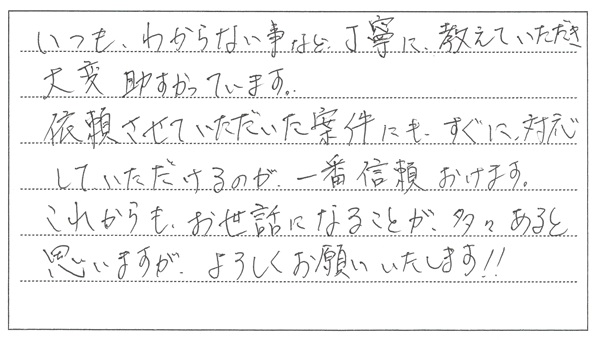 いつも、わからない事など、丁寧に、教えていただき
大変助すかっています。
依頼させていただいた案件にも、すぐに、対応
していただけるのが、一番信頼おけます。
これからも、お世話になることが、多々あると
思いますが、よろしくお願いいたします!!